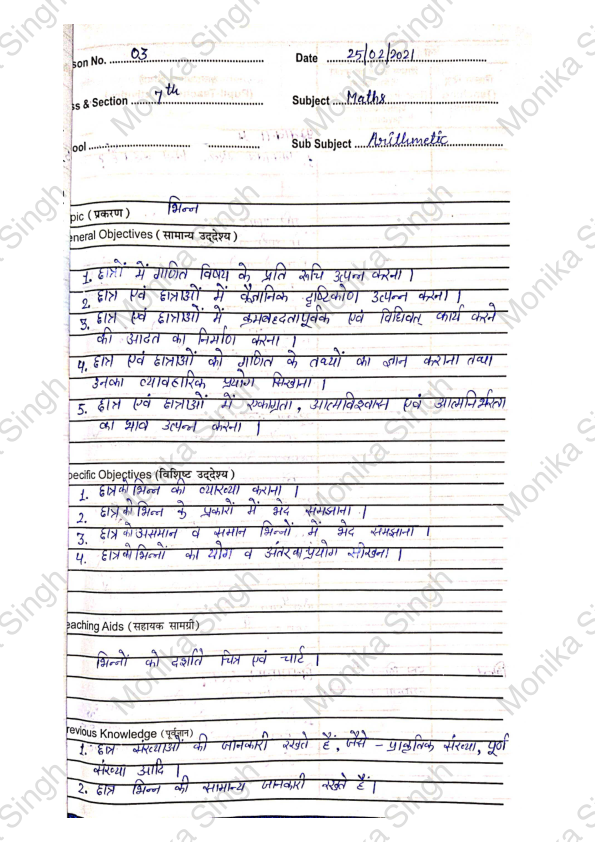 son No. 03
Date 25/02/2021
ss & Section 7th
Subject Maths
ool
Sub Subject Arithmetic
pic ( प्रकरण ) भिन्न
eneral Objectives ( सामान्य उद्देश्य )
1. छात्रों में गणित विषय के प्रति रूचि उत्पन्न करना ।
2. छात्र एवं छात्राओं में वैज्ञानिक दृष्टिकोण उत्पन्न करना ।
3. छात्र एवं छात्राओं में क्रमबद्धतापूर्वक एवं विधिवत् कार्य करने
की आदत का निर्माण करना ।
4. छात्र एवं छात्राओं को गणित के तथ्यों का ज्ञान कराना तथा
उनका व्यावहारिक प्रयोग सिखाना ।
5. छात्र एवं छात्राओं में एकाग्रता, आत्मविश्वास एवं आत्मनिर्भरता
का भाव उत्पन्न करना ।
pecific Objectives (विशिष्ट उद्देश्य )
1. छात्र को भिन्न की व्याख्या कराना ।
2. छात्र को भिन्न के प्रकारों में भेद समझाना ।
3. छात्र को असमान व समान भिन्नों में भेद समझाना ।
4. छात्र को भिन्नों का योग व अंतर का प्रयोग सीखना ।
eaching Aids ( सहायक सामग्री)
भिन्नों को दर्शाते चित्र एवं चार्ट ।
revious Knowledge (पूर्वज्ञान)
1. छात्र संख्याओं की जानकारी रखते हैं, जैसे - प्राकृतिक संख्या, पूर्ण
संख्या आदि ।
2. छात्र भिन्न की सामान्य जानकारी रखते हैं।
Monika Singh